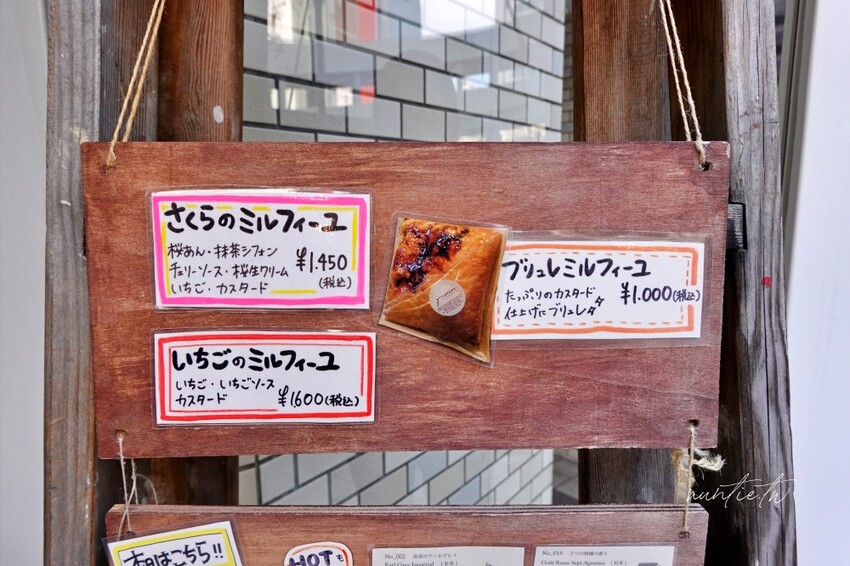 さくらのミルフィーユ
桜あん・抹茶シフォン
チェリーソース・桜生クリーム
いちご・カスタード
¥1.450
(税込)
ブリュレミルフィーユ
たっぷりのカスタード
仕上げにブリュレ
¥1.000(税込)
いちごのミルフィーユ
いちご・いちごソース
カスタード
¥1600(税込)
auntie.tw
本日はこちら!!
HOTも
No_002
Earl Grey Imperial
(紅茶)
No_015
7つの柑橘の香り
Goût Russe Sept Agrumes
(紅茶)